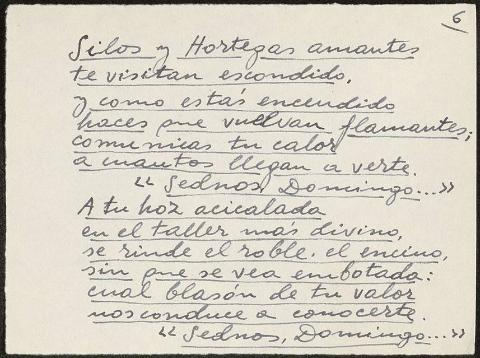 6
Silos y Hortegas amantes
te visitan escondido,
y como estás encendido
haces que vuelvan flamantes;
comunicas tu calor
a cuantos llegan a verte.
"Sednos, Domingo..."
A tu hoz acicalada
en el taller más divino,
se rinde el roble, el encino,
sin que se vea embotada:
cual blasón de tu valor
nos conduce a conocerte.
"Sednos, Domingo..."